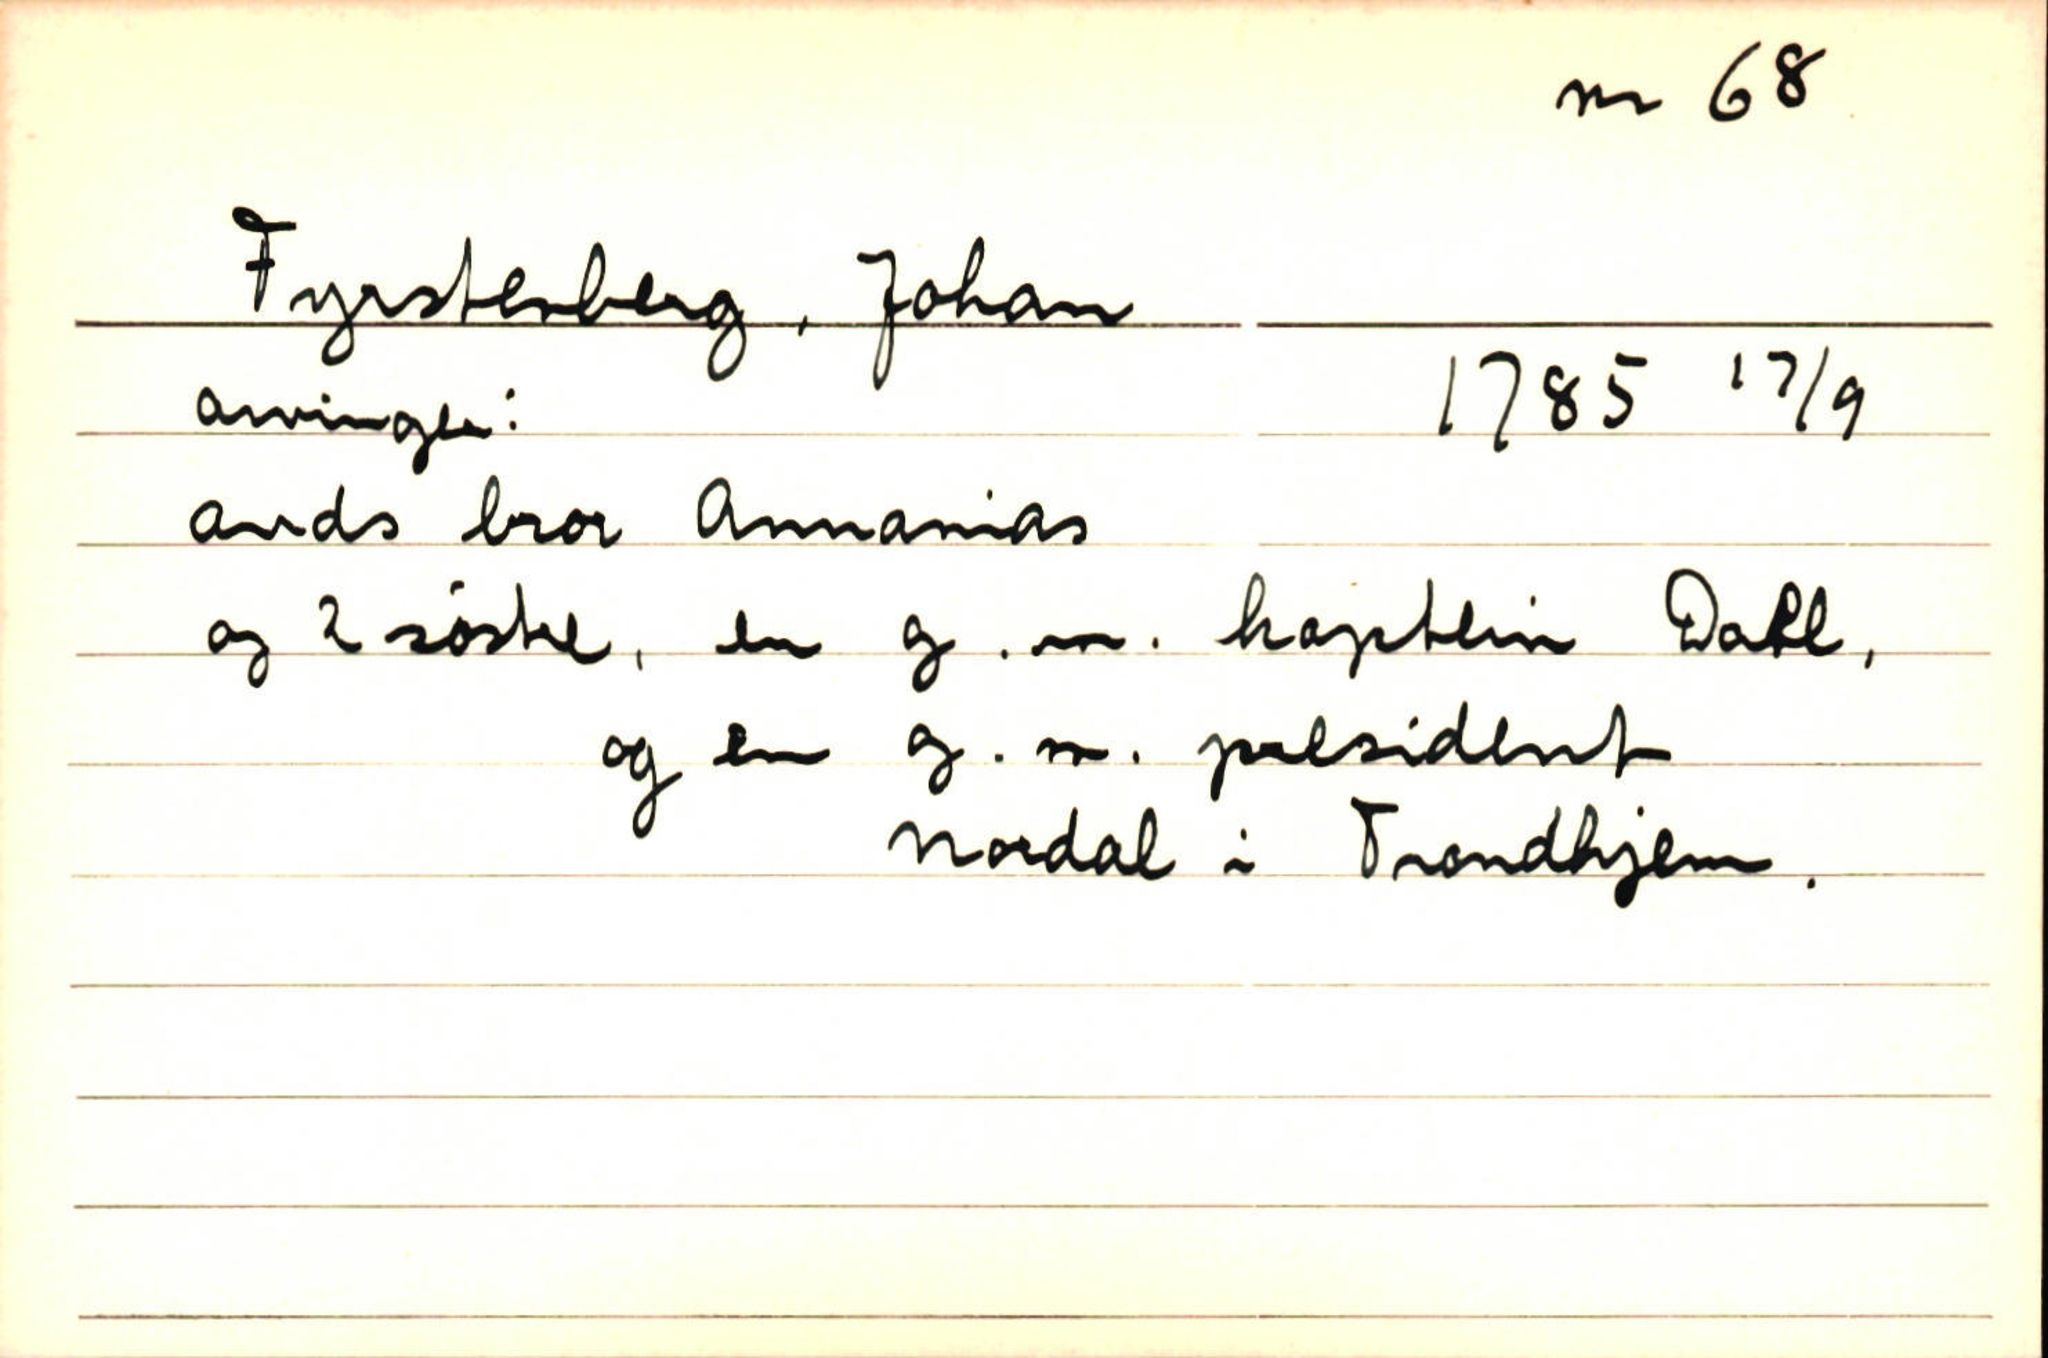 nr 68
Fyrstenberg, Johan
arvinger: 1785 17/9
avds bror Annanias
og 2 søstre, en g.m. kaptein Dahl,
og en g.m. president
Nordal i Trondhjem.